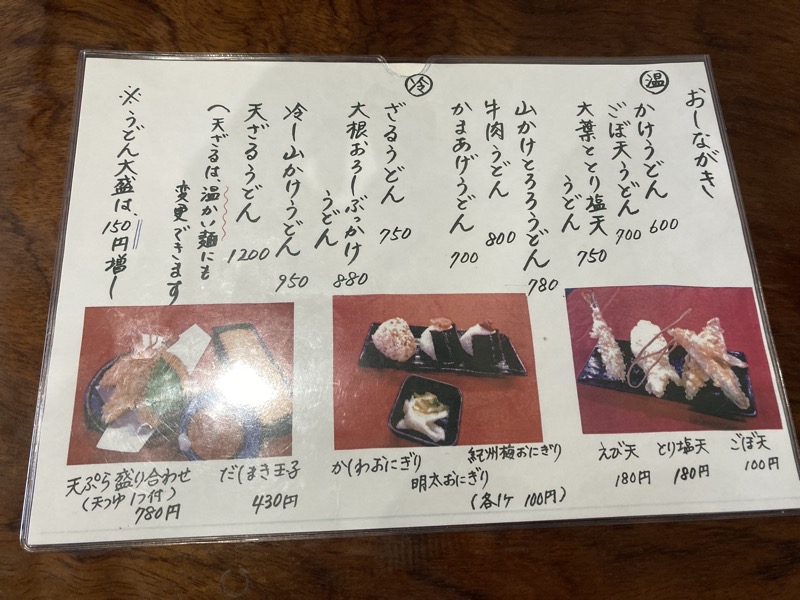 おしながき
温
かけうどん 600
ごぼ天うどん 700
大葉ととり塩天
うどん 750
山かけとろろうどん 780
牛肉うどん 800
かまあげうどん 700
冷
ざるうどん 750
大根おろしぶっかけ
うどん 880
冷し山かけうどん 950
天ざるうどん 1200
(天ざるは、温かい麺にも
変更できます
※うどん大盛は、150円増し
天ぷら盛り合わせ
(天つゆ1つ付)
780円
だしまき玉子
430円
かしわおにぎり
明太おにぎり
紀州梅おにぎり
(各1ケ 100円)
えび天
180円
とり塩天
180円
ごぼ天
100円